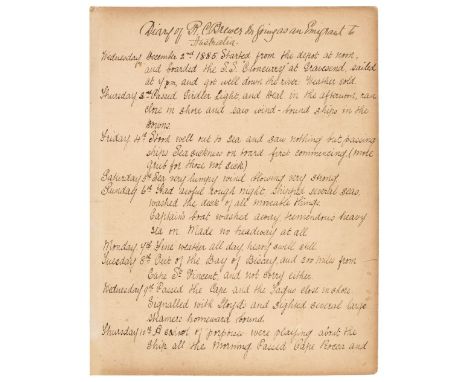 Diary of R. C. Brewer In Going as an Emigrant to
Australia.
Wednesday December 2nd 1885 Started from the depot at noon,
and boarded the S.S. at Gravesend, sailed
at 4 pm, and got well down the river. Weather cold.
Thursday 3rd Passed Girdler Light, and Deal in the afternoon, ran
close in shore and saw wind-bound ships in the
Downs.
Friday 4th Stood well out to sea and saw nothing but passing
ships Sea sickness on board first commencing (more
Grub for those not sick)
Saturday 5th Sea very lumpy wind blowing very strong
Sunday 6th Had awful rough night. Shipped several seas,
washed the deck of all moveable things.
Captain's boat washed away, tremendous heavy
sea on. Made no headway at all
Monday 7th Fine weather all day, heavy swell still
Tuesday 8th Out of the Bay of Biscay, and 200 miles from
Cape St Vincent, and not sorry either.
Wednesday 9th Passed the Cape and the Tagus close in shore.
Signalled with Lloyds and Sighted several large
steamers homeward bound.
Thursday 10th A school of porpoises were playing about the
ship all the morning Passed Cape and